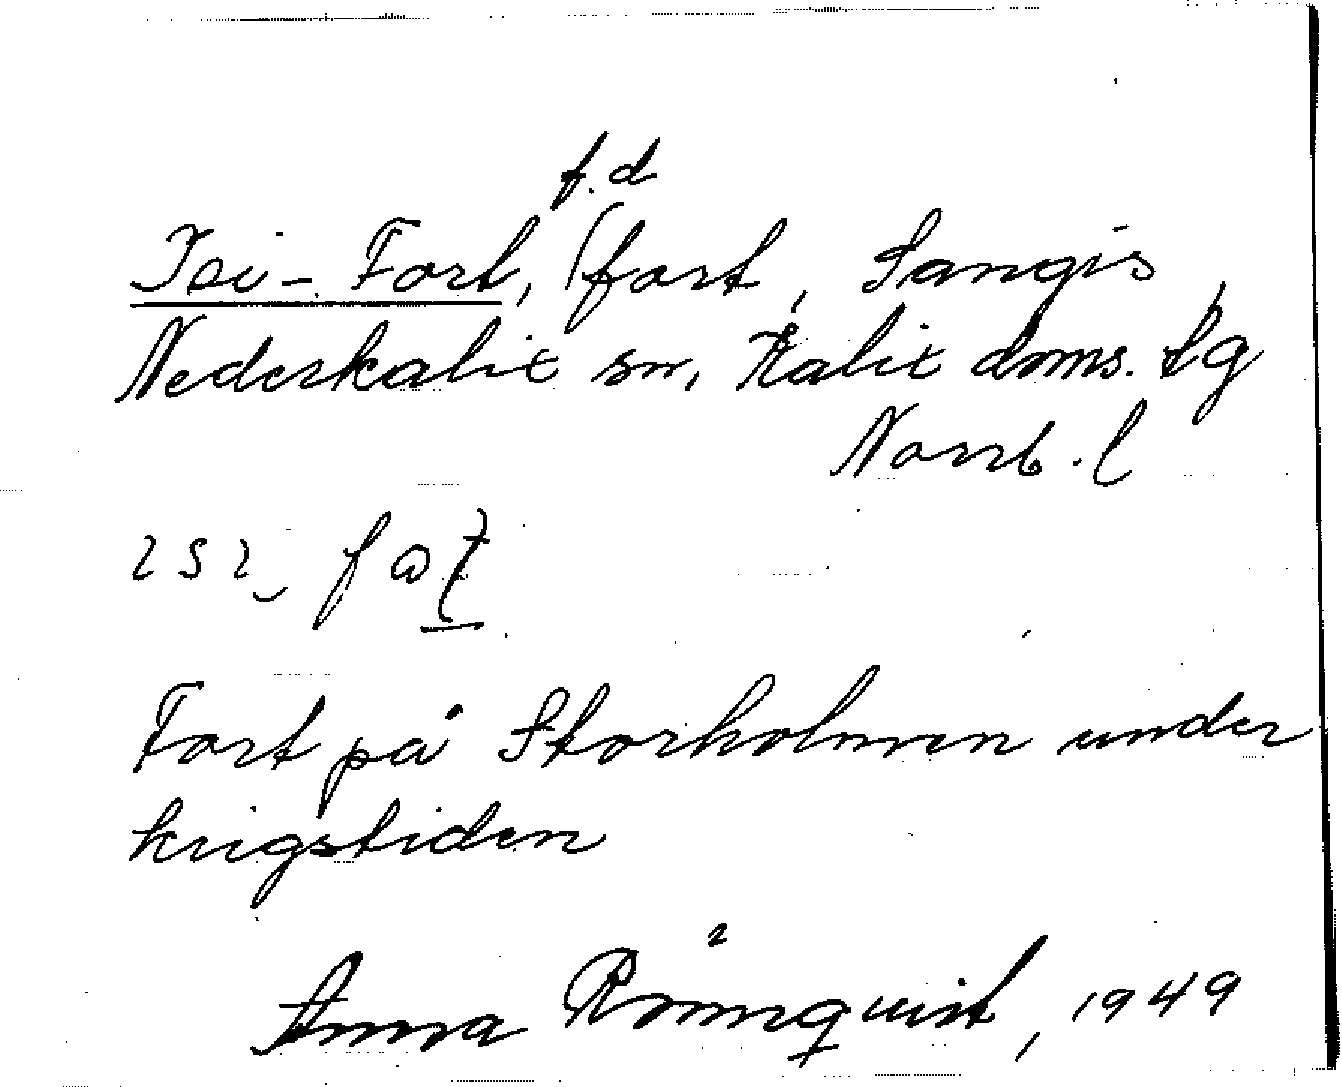 f.d
Isi-Fort, fort, Sangis,
Nederkalix sn, Kalix doms. lg
Norrb. l
Fort på Storholmen under
krigstiden
Anna Rönnquist, 1949